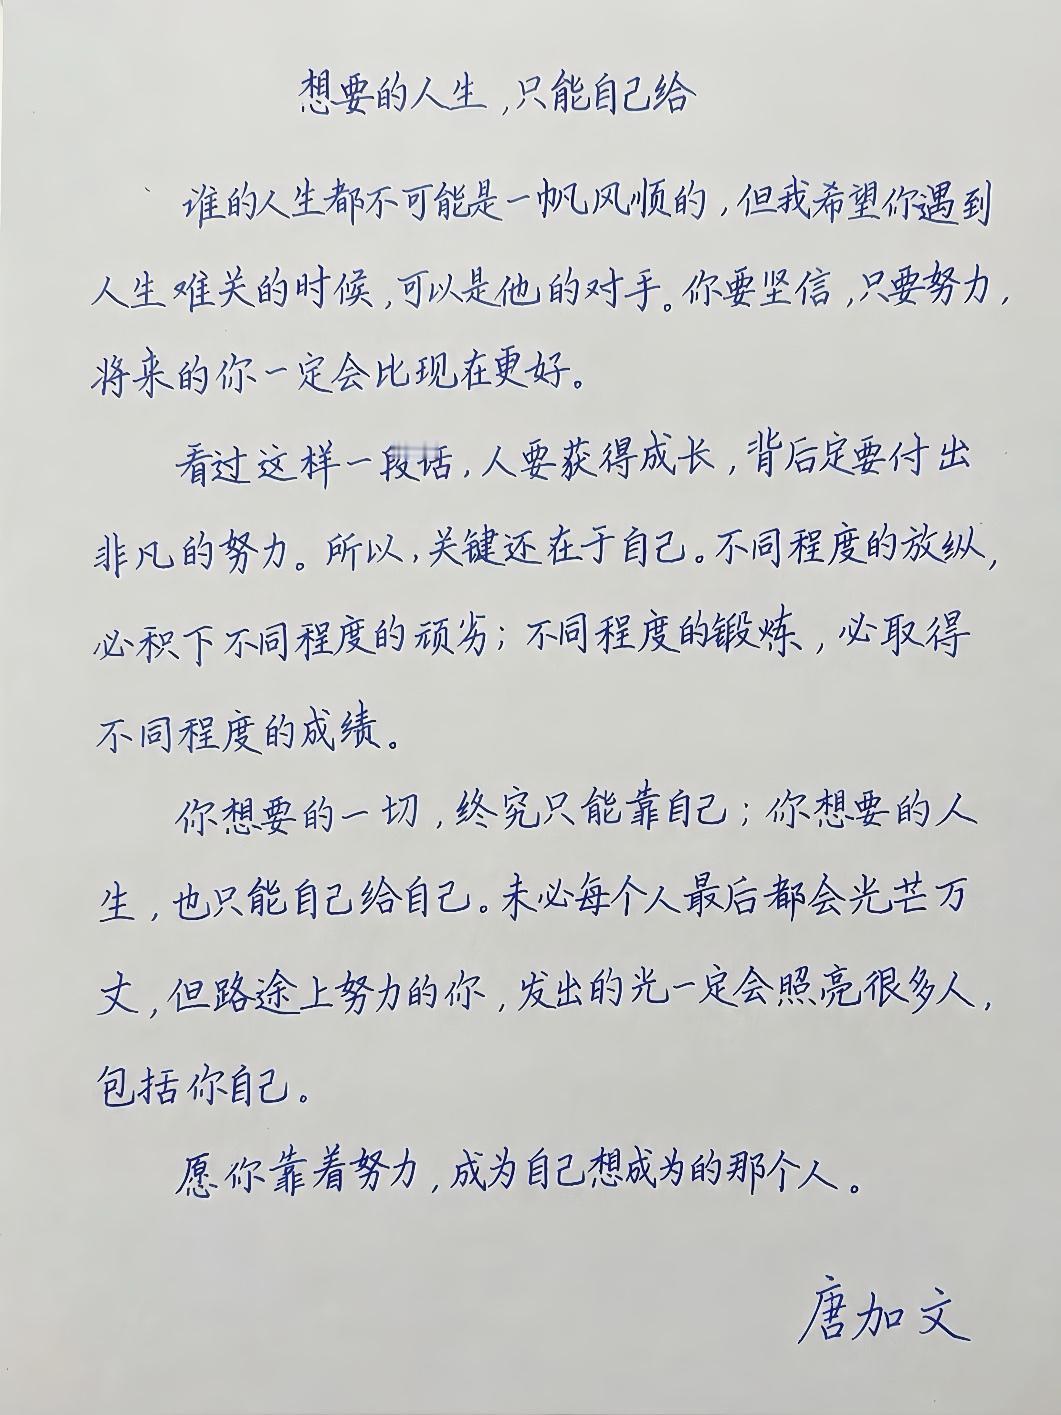 想要的人生,只能自己给
谁的人生都不可能是一帆风顺的,但我希望你遇到
人生难关的时候,可以是他的对手。你要坚信,只要努力,
将来的你一定会比现在更好。
看过这样一段话,人要获得成长,背后定要付出
非凡的努力。所以,关键还在于自己。不同程度的放纵,
必积下不同程度的顽劣;不同程度的锻炼,必取得
不同程度的成绩。
你想要的一切,终究只能靠自己;你想要的人
生,也只能自己给自己。未必每个人最后都会光芒万
丈,但路途上努力的你,发出的光一定会照亮很多人,
包括你自己。
愿你靠着努力,成为自己想成为的那个人。
唐加文